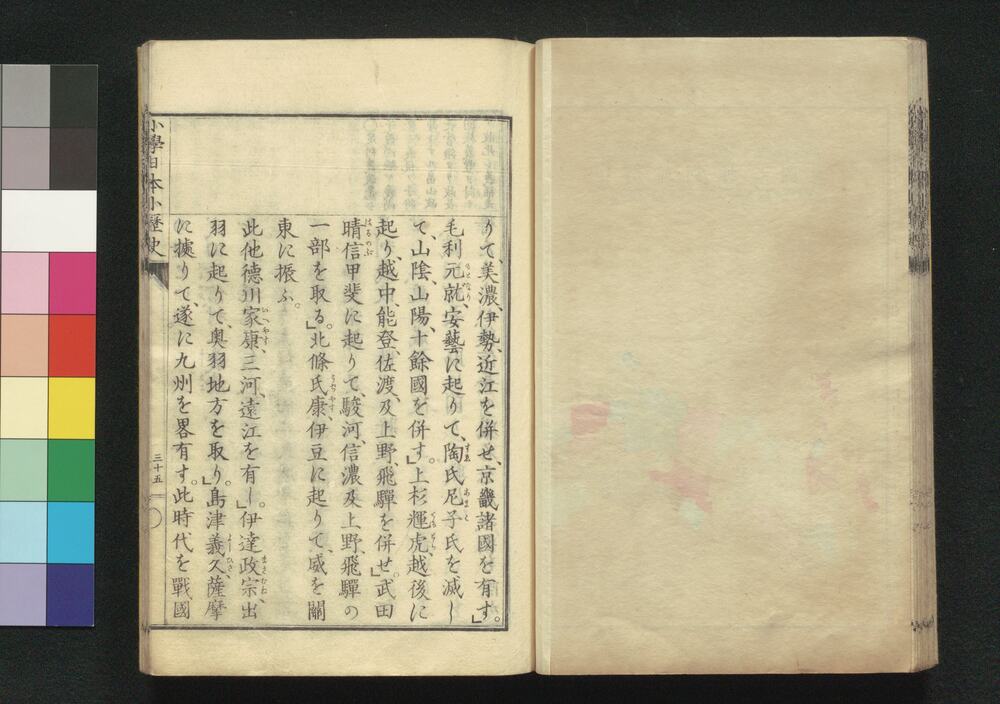 りて、美濃、伊勢、近江を併せ、京畿諸國を有す。」
毛利元就、安藝に起りて、陶氏尼子氏を滅し
て、山陰、山陽十餘國を併す。」上杉輝虎越後に
起り、越中、能登、佐渡、及上野、飛驒を併せ。」武田
晴信甲斐に起りて、駿河、信濃及上野、飛驒の
一部を取る。」北條氏康、伊豆に起りて、威を關
東に振ふ。
此他德川家康、三河、遠江を有し。」伊達政宗、出
羽に起りて、奥羽地方を取り。」島津義久、薩摩
に據りて、遂に九州を畧有す。此時代を戰國
小學日本小歷史
三十五